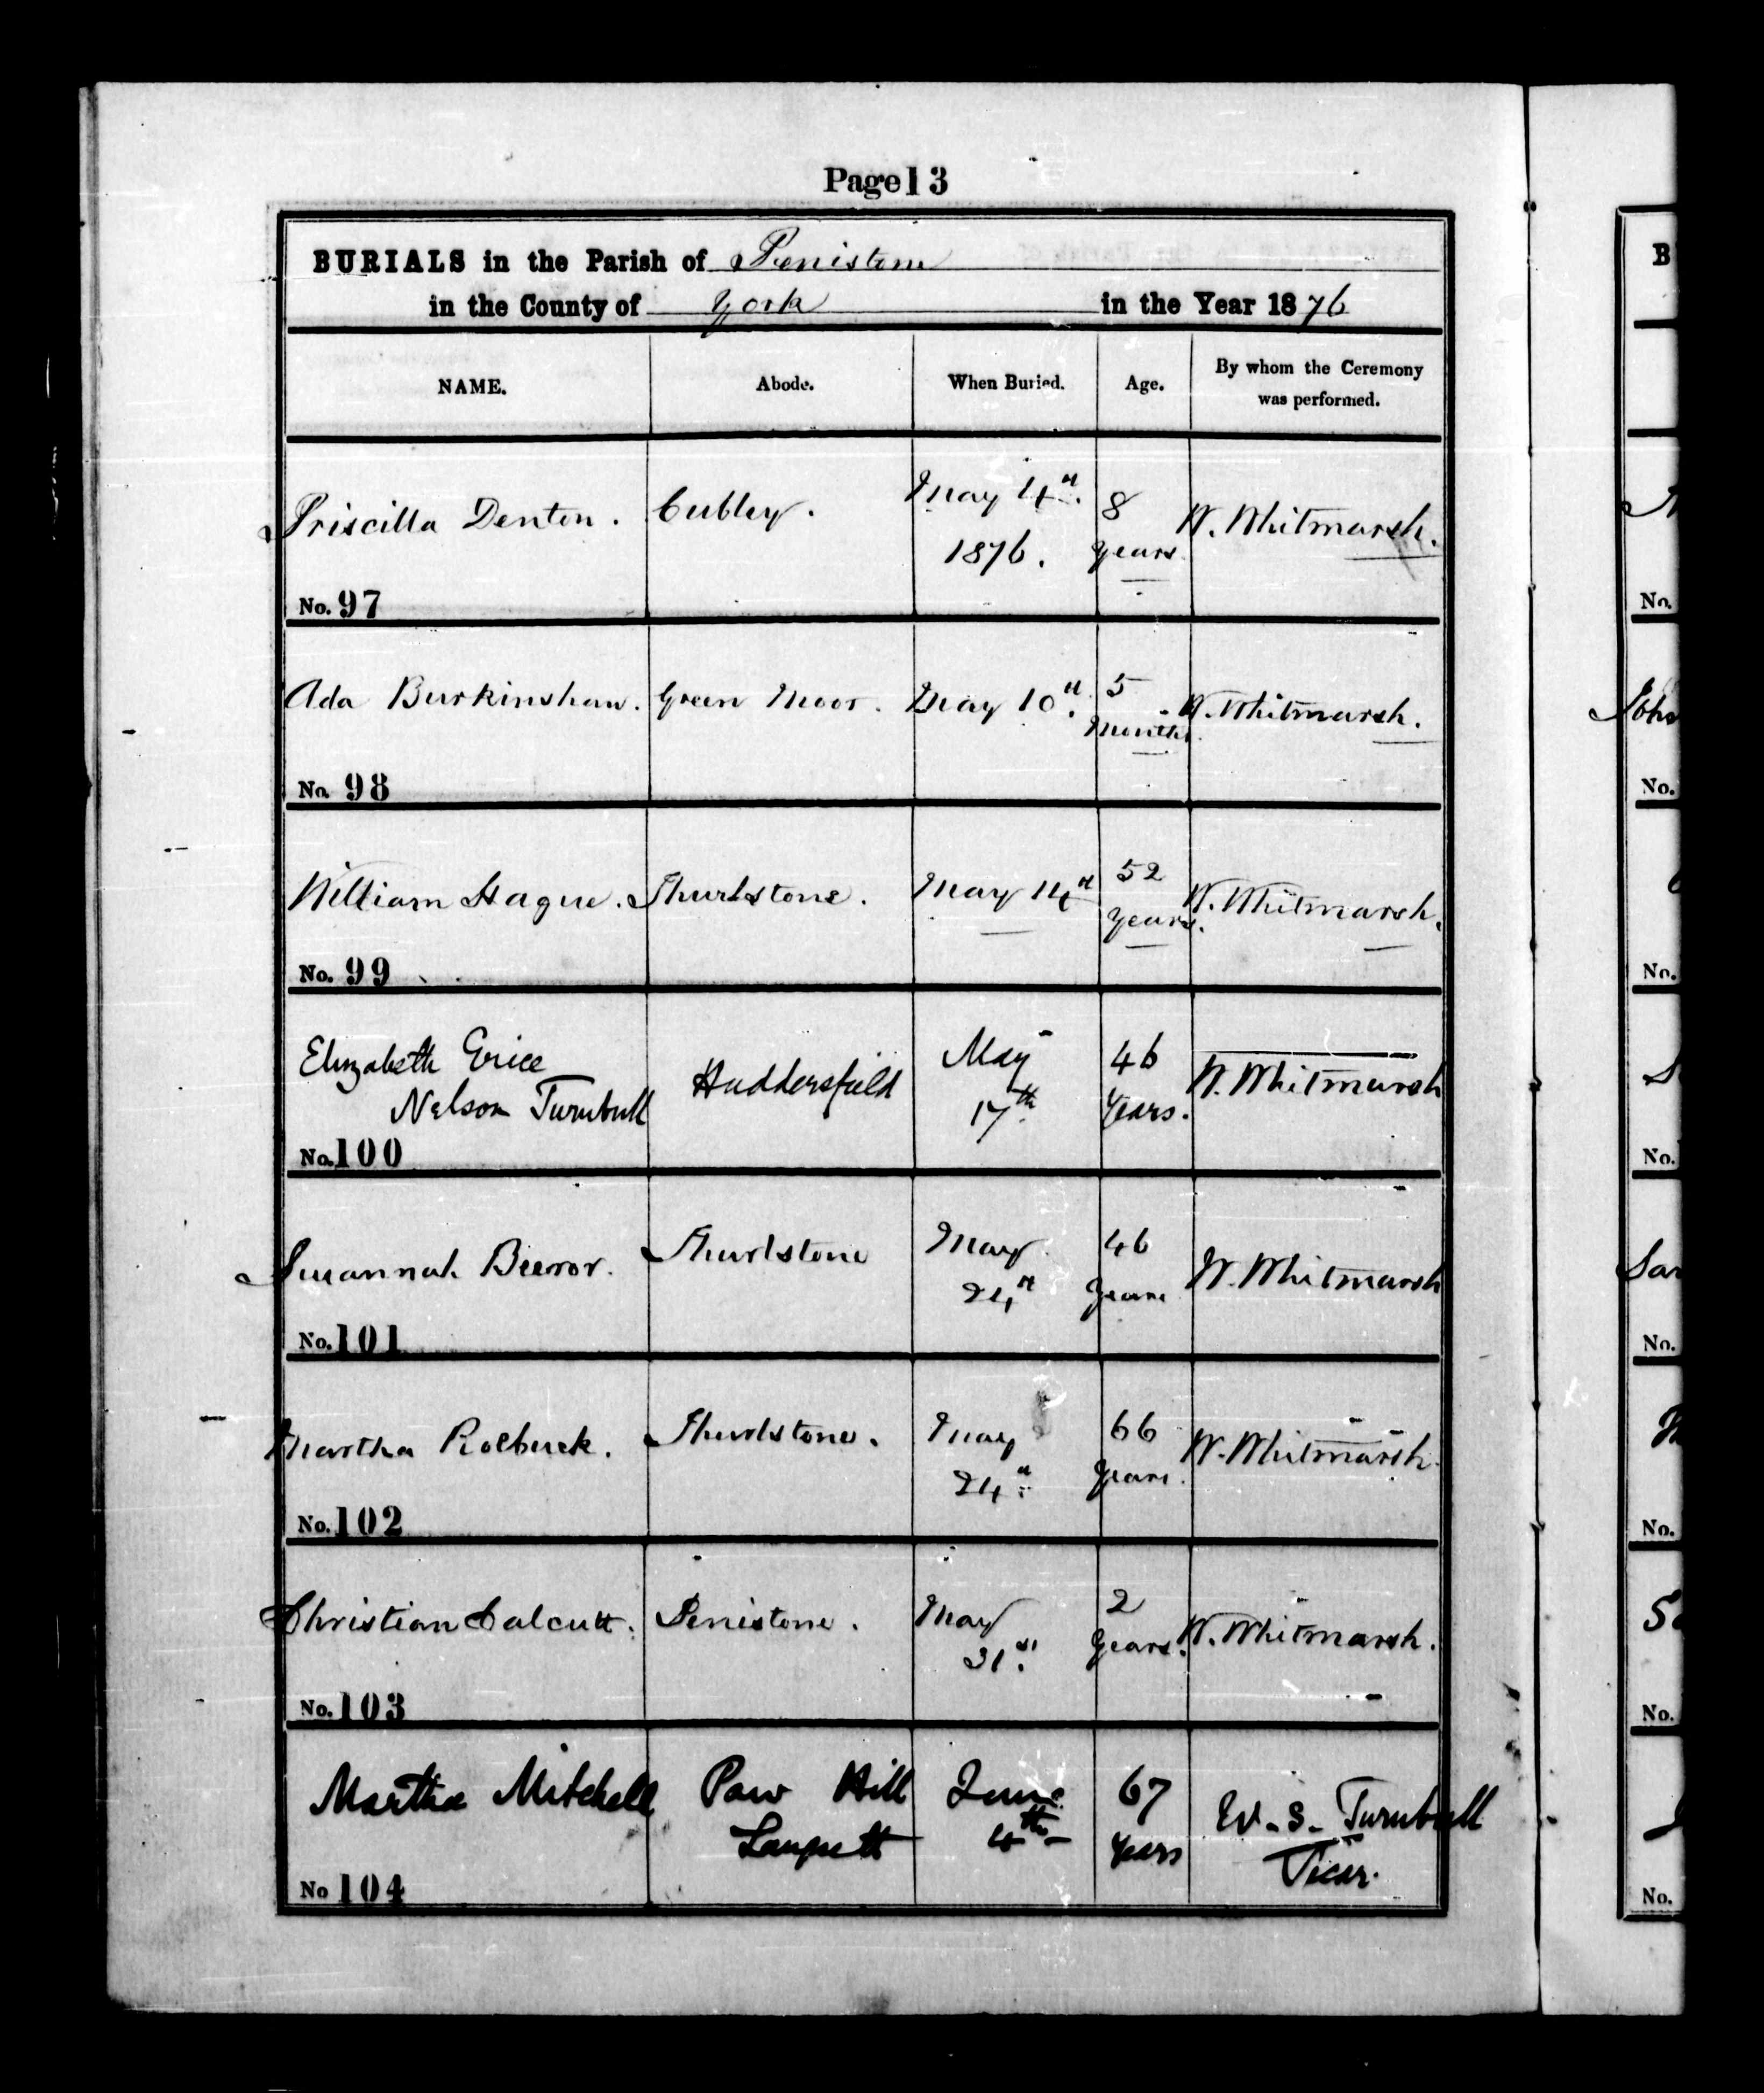 Page 13
BURIALS in the Parish of Penistone
in the County of York in the Year 1876
NAME. Abode. When Buried. Age. By whom the Ceremony was performed.
Priscilla Denton. Cubley. May 4th 8 W. Whitmarsh.
1876. years
No. 97
Ada Burkinshaw. Green Moor. May 10th. 5 W. Whitmarsh.
Months.
No. 98
William Hague. Thurlstone. May 14th 52 W. Whitmarsh.
years.
No. 99
Elizabeth Grice Huddersfield May 46 W. Whitmarsh
Nelson Turnbull 17th. Years.
No. 100
Susannah Beevor. Thurlstone May 46 W. Whitmarsh
24th years
No. 101
Martha Roebuck. Thurlstone. May 66 W. Whitmarsh.
24th years.
No. 102
Christian Calcutt. Penistone. May 2 W. Whitmarsh.
31st. years.
No. 103
Martha Mitchell Paw Hill June 67 W. S. Turnbull
Langsett 4th Years Vicar.
No 104
B
No.
John
No.
No.
No.
Sar
No.
No.
No.
No.